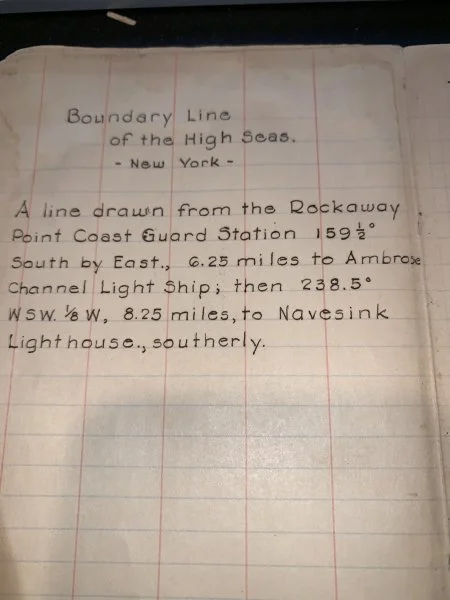 Boundary Line
of the High Seas.
- New York -
A line drawn from the Rockaway
Point Coast Guard Station 159 ½°
South by East., 6.25 miles to Ambrose
Channel Light Ship; then 238.5°
WSW. ⅛ W, 8.25 miles, to Navesink
Lighthouse., southerly.